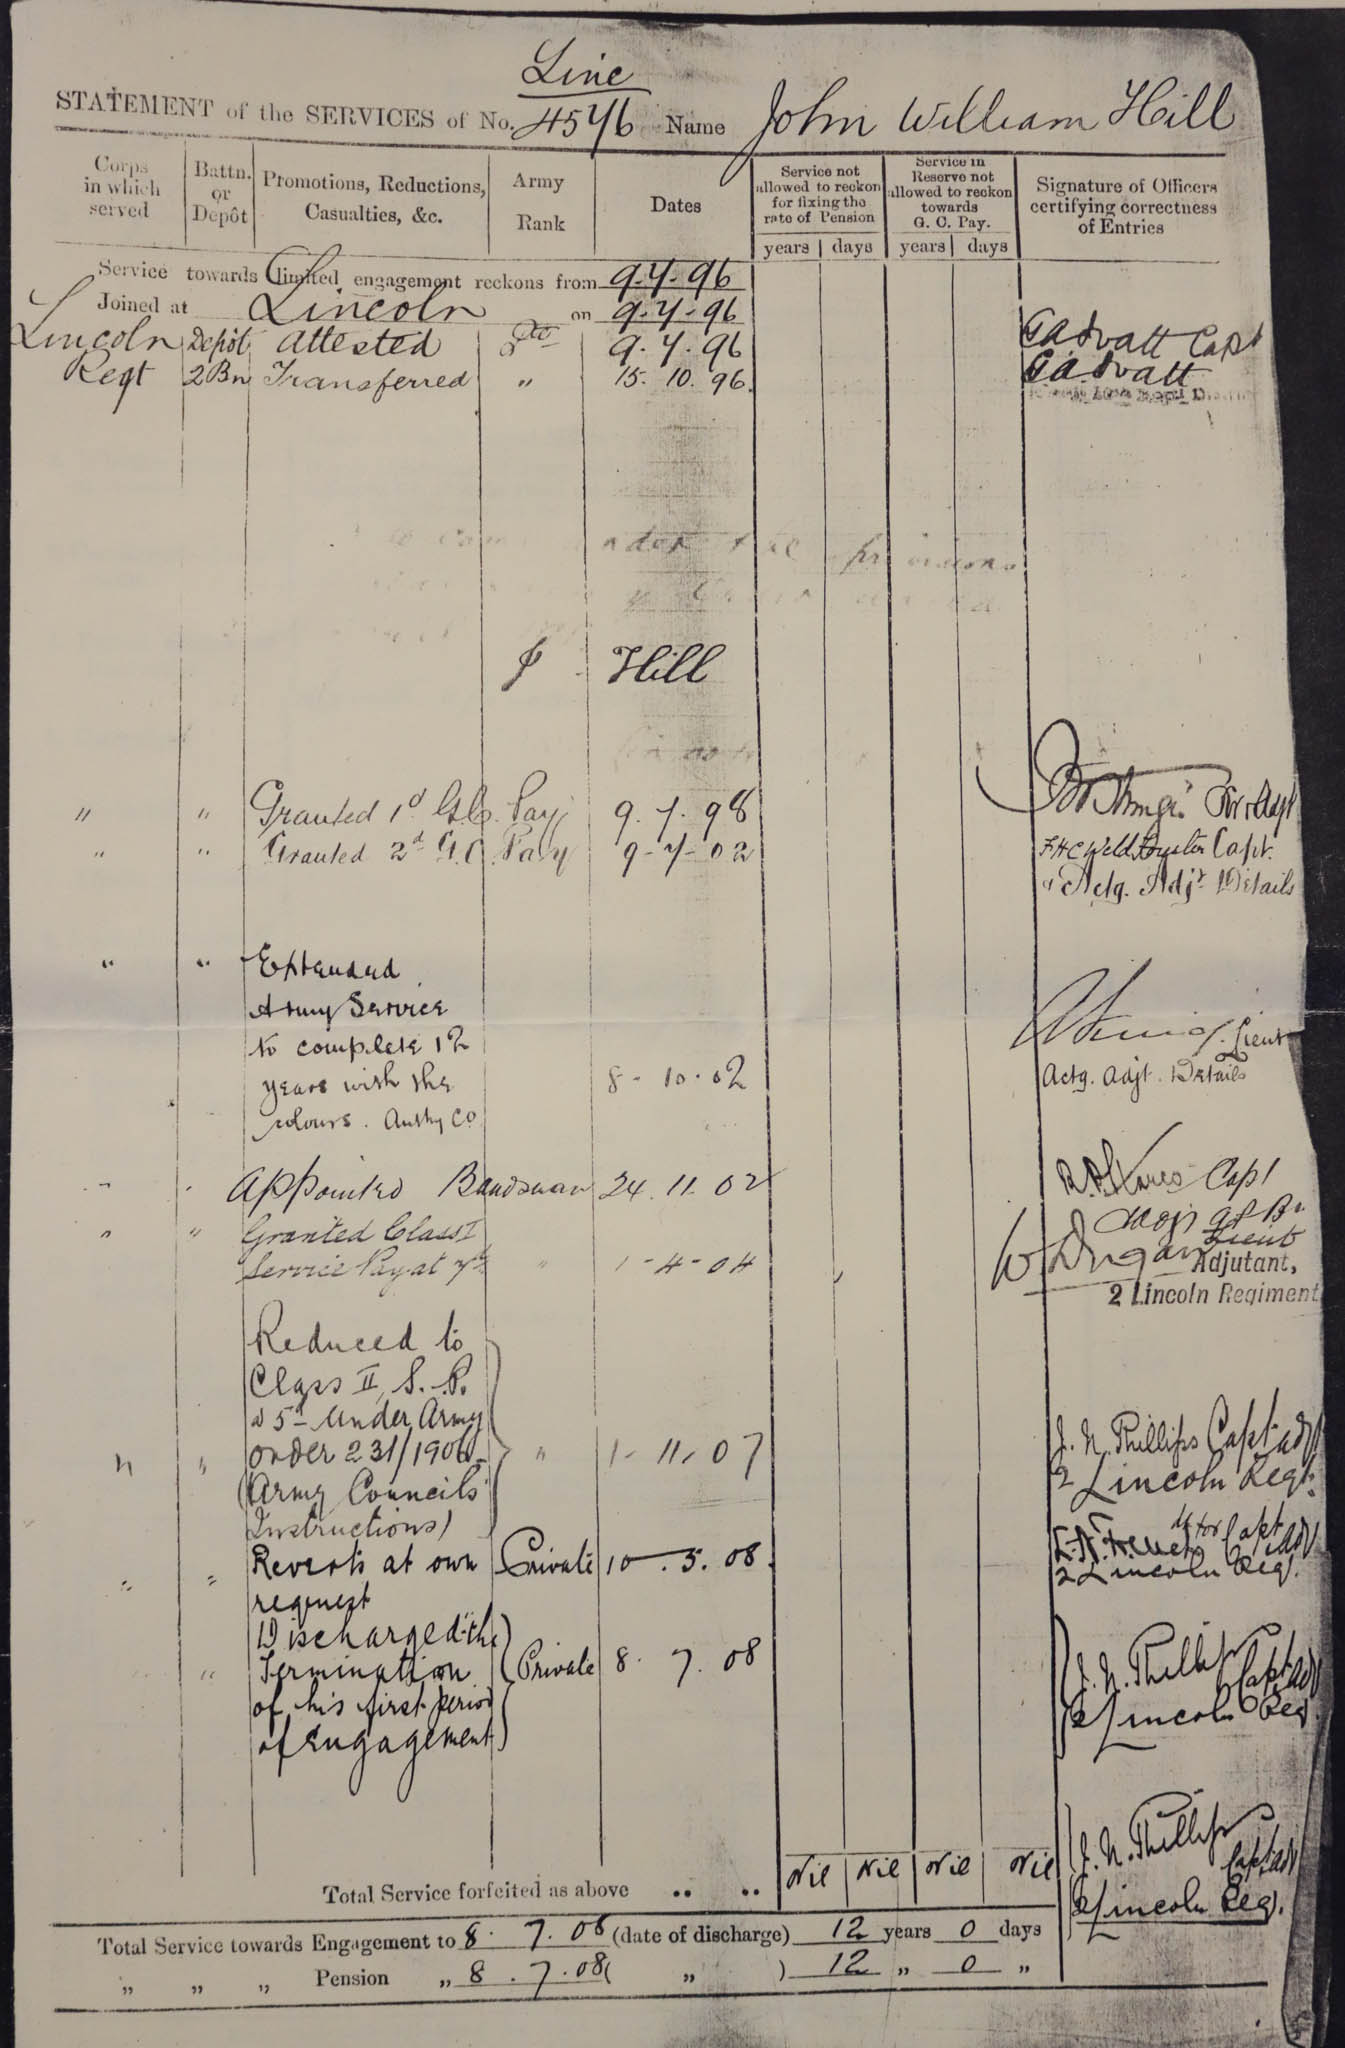 Line
STATEMENT of the SERVICES of No. 4546 Name John William Hill
Corps in which served
Battn. or Depôt
Promotions, Reductions, Casualties, &c.
Army Rank
Dates
Service not allowed to reckon for fixing the rate of Pension
years days
Service in Reserve not allowed to reckon towards G. C. Pay.
years days
Signature of Officers certifying correctness of Entries
Service towards limited engagement reckons from 9.7.96
Joined at Lincoln on 9.7.96
Lincoln Depôt Attested Pte 9.7.96 Capt
Regt 2 Bn Transferred " 15.10.96.
J Hill
" " Granted 1d G.C. Pay 9.7.98
" " Granted 2d G.C. Pay 9-7-02 Capt.
Actg. Adjt Details
" " Extended
Army Service
to complete 12
years with the 8-10-02 Lieut
colours. Authy CO Actg. Adjt. Details
" " Appointed Bandsman 24.11.02 Capt
" " Granted Class I
Service Pay at 7d " 1-4-04 Lieut
Adjutant,
2 Lincoln Regiment
Reduced to
Class II, S.P.
a 5d under Army
" " order 231/1906 " 1-11-07 J. N. Phillips Capt. adj
(Army Councils 2 Lincoln Regt.
Instructions)
" " Reverts at own Private 10.5.08. Capt adj
request 2 Lincoln Reg.
Discharged the
" Termination Private 8.7.08 J. N. Phillips
of his first period Capt. adj
of Engagement 2/Lincoln Reg.
J. N. Phillips
Capt. adj
Total Service forfeited as above .. .. Nil Nil Nil Nil 2/Lincoln Reg.
Total Service towards Engagement to 8.7.08 (date of discharge) 12 years 0 days
" " " Pension " 8.7.08 ( " ) 12 " 0 "